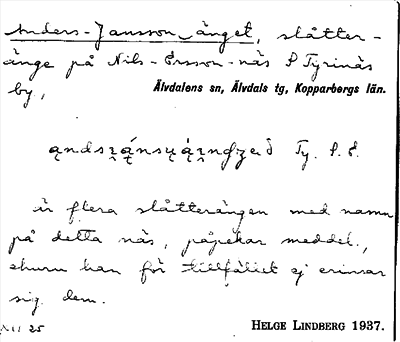 Anders-Jansson-änget, slåtter-
änge på Nils-Ersson-näs i Tyrinäs
by, Älvdalens sn, Älvdals tg, Kopparbergs län.
Ty.
är flera slåtterängen med namn
på detta näs, påpekar meddel.,
ehuru han för tillfället ej erinrar
sig dem.
XII 25
HELGE LINDBERG 1937.